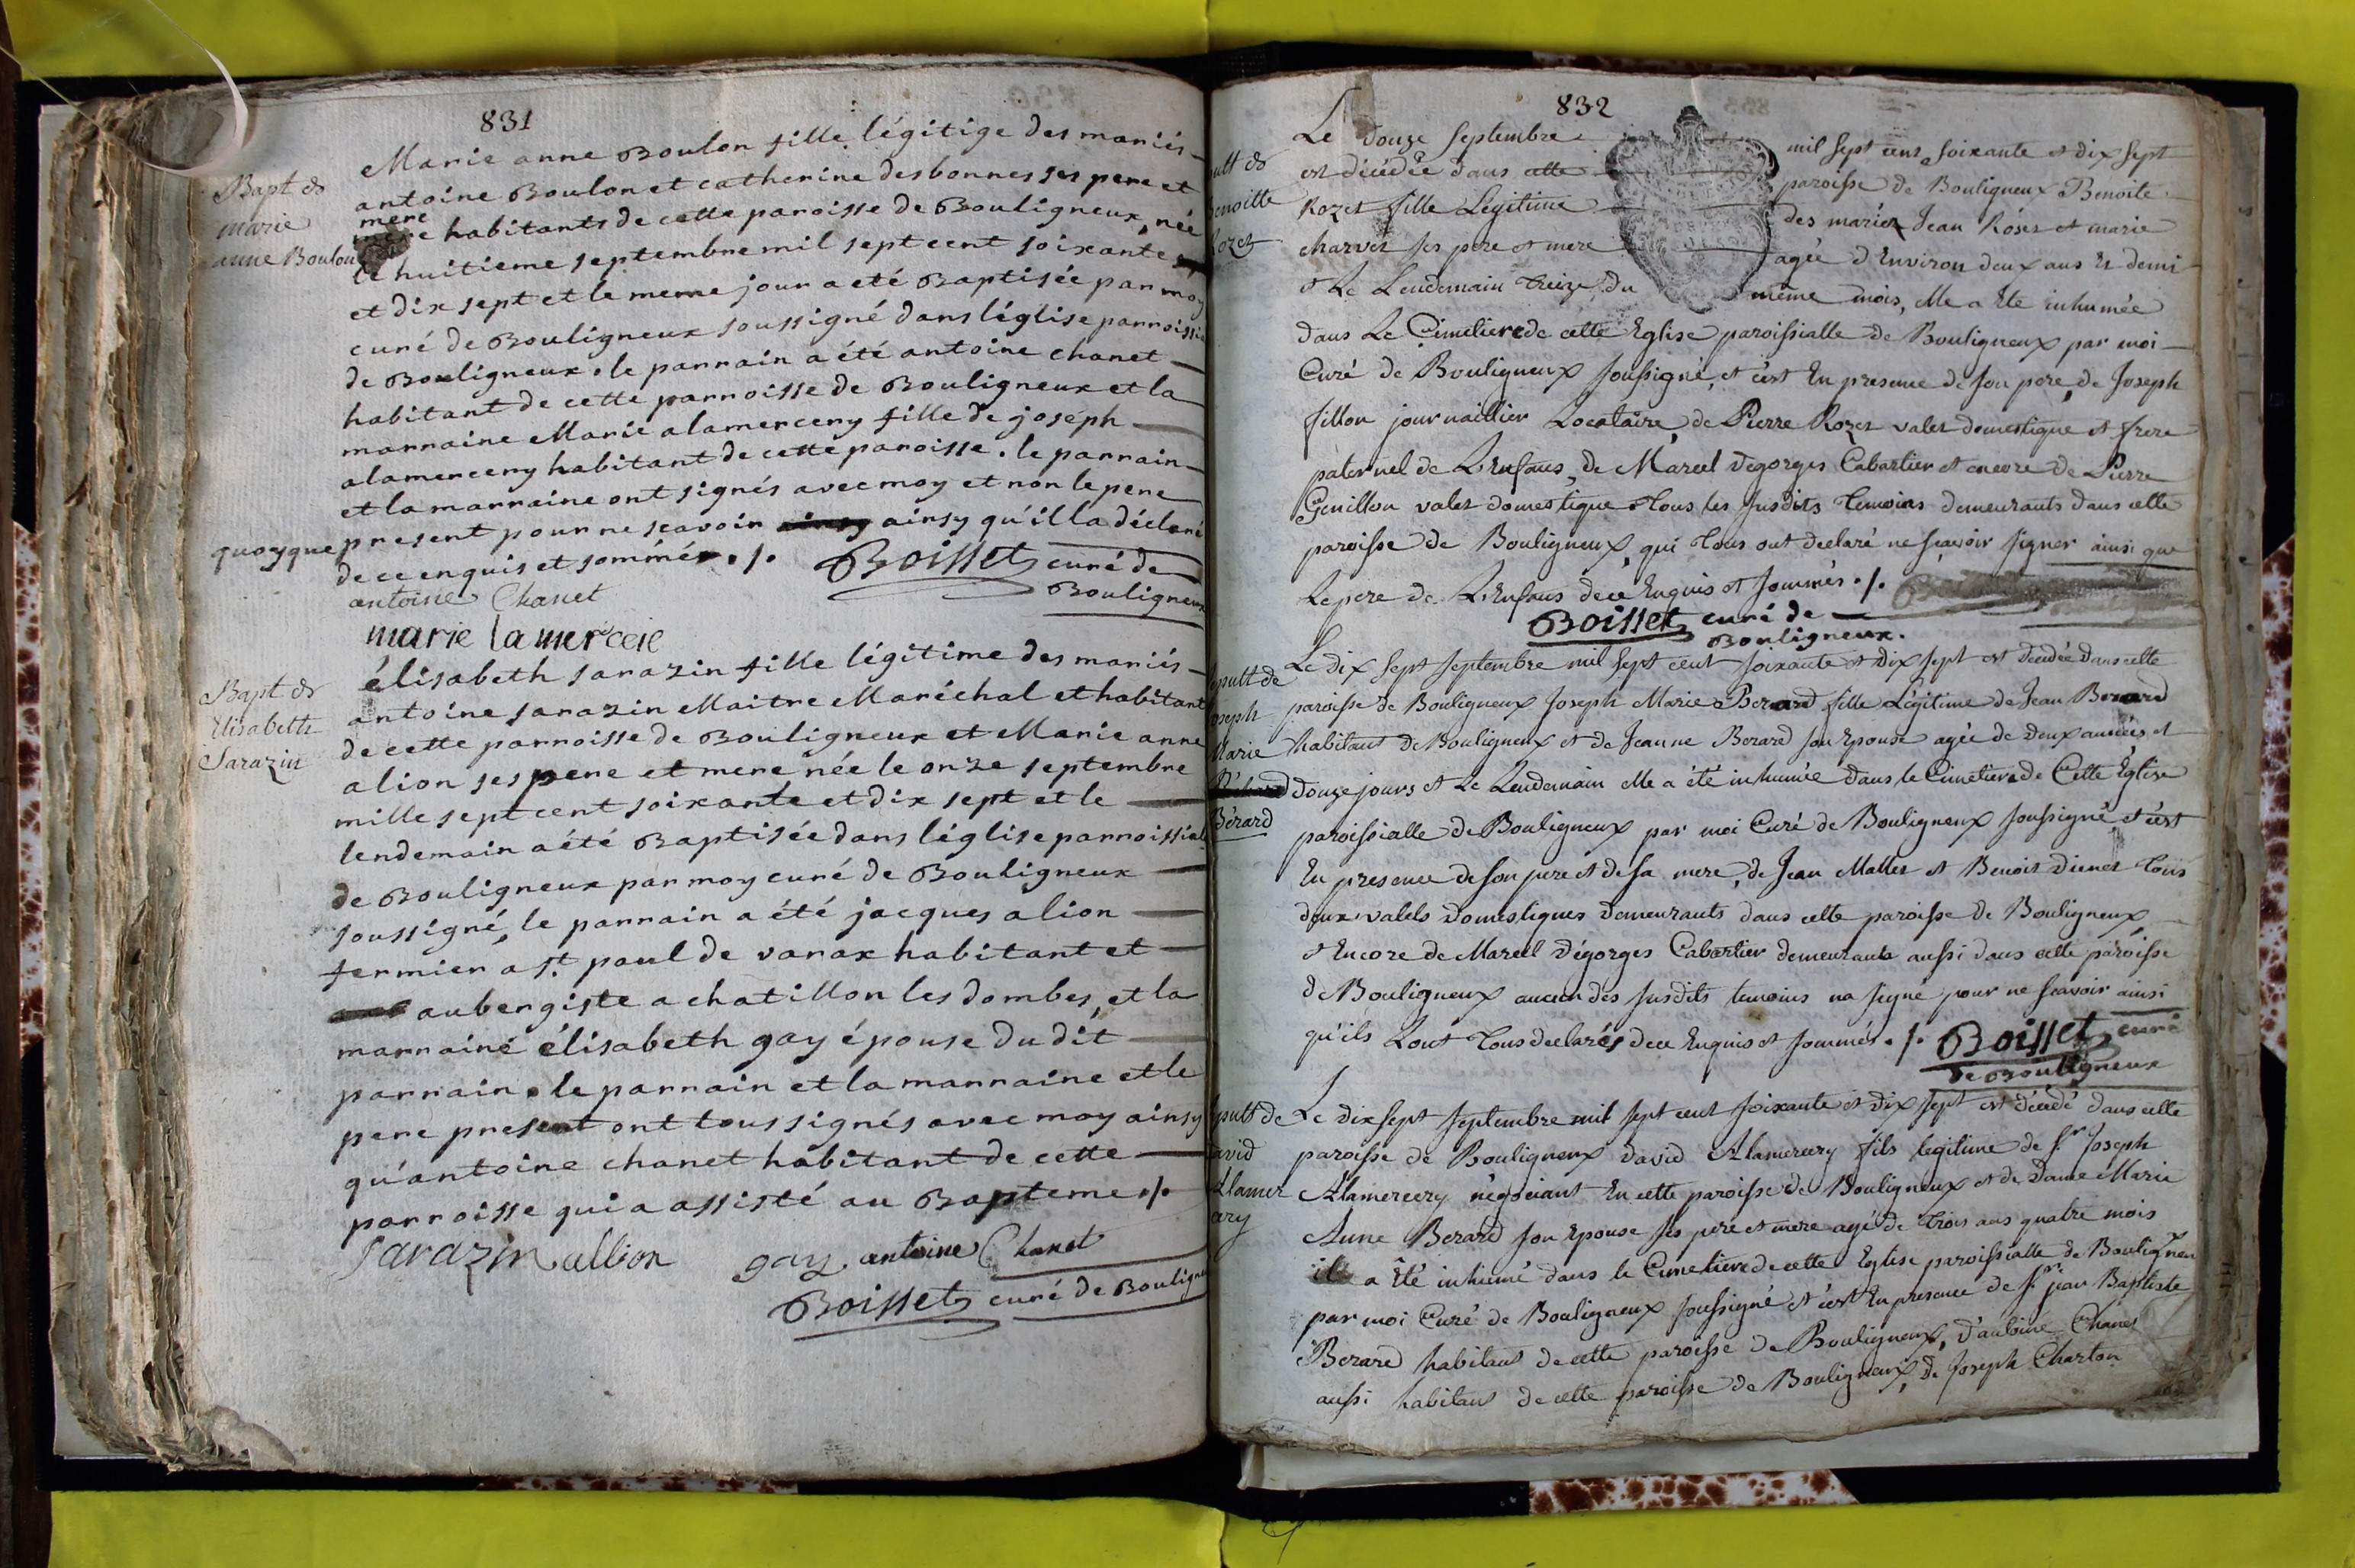 831
Bapt de
marie
anne Boulon
Marie anne Boulon fille légitige des mariés
antoine Boulon et catherine desbonnes ses pere et
mere
habitants de cette paroisse de Bouligneux, née
le huitieme septembre mil sept cent soixante
et dix sept et le meme jour a eté Baptisée par moy
curé de Bouligneux soussigné dans léglise parroissi
de Bouligneux. le parrain a été antoine chanet
habitant de cette parroisse de Bouligneux et la
marraine Marie alamercery fille de joséph
alamercery habitant de cette paroisse. le parrain
et la marraine ont signés avec moy et non le pere
quoyque present pour ne scavoir ainsy qu'il la déclaré
de ce enquis et sommés ./. Boisset curé de
Bouligneux
antoine Chanet
marie lamerceie
Bapt de
Elisabeth
Sarazin
élisabeth sarazin fille légitime des mariés
antoine sarazin Maitre Maréchal et habitant
de cette parroisse de Bouligneux et Marie anne
alion ses pere et mere née le onze septembre
mille sept cent soixante et dix sept et le
lendemain a été Baptisée dans léglise parroissial
de Bouligneux par moy curé de Bouligneux
soussigné, le parrain a été jacques alion
fermier a st. paul de varax habitant et
aubergiste a chatillon les dombes, et la
marrainé élisabeth gay épouse du dit
parrain. le parrain et la marraine et le
pere present ont tous signés avec moy ainsy
qu'antoine chanet habitant de cette
parroisse qui a assisté au Bapteme ./.
Sarazin allion gay antoine Chanet
Boisset curé de Bouligne
832
ult de
Benoitte
Rozet
Le douze septembre mil sept cent soixante et dix sept
est décédée dans cette paroisse de Bouligneux Benoite
Rozet fille Légitime des mariez Jean Rózet et marie
charvet ses pere et mere agée d'Environ deux ans Et demi
et Le Lendemain treize du même mois, elle a Eté inhumée
dans Le Cimetiere de cette Eglise paroissialle de Bouligneux par moi
Curé de Bouligneux soussigné, et c'est En presence de son pere, de Joseph
fillon journaillier Locataire, de Pierre Rozet valet domestique et frere
paternel de L'Enfans, de Marcel degorges Cabartier et encore de Pierre
Genillon valet domestique tous les susdits temoins demeurants dans cette
paroisse de Bouligneux, qui tous ont declaré ne sçavoir signer ainsi que
Le pere de L'Enfans de ce Enquis et sommés ./.
Boisset curé de
Bouligneux.
pult de
Joseph
Marie
Bérard
Le dix sept septembre mil sept cent soixante et dix sept est decedée dans cette
paroisse de Bouligneux Joseph Marie Berard fille Légitime de Jean Berard
habitant de Bouligneux et de Jeanne Berard son Epouse agée de deux années et
douze jours et Le Lendemain elle a été inhumée dans le Cimetiere de Cette Eglise
paroissialle de Bouligneux par moi Curé de Bouligneux soussigné, et c'est
En presence de son pere et de sa mere, de Jean Mattes et Benoit Dienet tous
deux valets domestiques demeurants dans cette paroisse de Bouligneux
et Encore de Marcell dégorges Cabartier demeurant aussi dans cette paroisse
de Bouligneux aucun des susdits temoins na signé pour ne scavoir ainsi
qu'ils L'ont tous declarés de ce Enquis et sommés ./. Boisset curé
de Bouligneux
pult de
david
Alamer
cery
Le dix sept septembre mil sept cent soixante et dix sept est décedé dans cette
paroisse de Bouligneux david Alamercery fils legitime de sr. Joseph
Alamercery négociant En cette paroisse de Bouligneux et de dame Marie
Anne Berard son Epouse ses pere et mere agé de trois ans quatre mois
il a Eté inhumé dans le Cimetiere de cette Eglise paroissialle de Bouligneux
par moi Curé de Bouligneux soussigné et c'est En presence de sr. jean Baptiste
Berard habitant de cette paroisse de Bouligneux, d'antoine Chanet
aussi habitant de cette paroisse de Bouligneux, de Joseph Charton